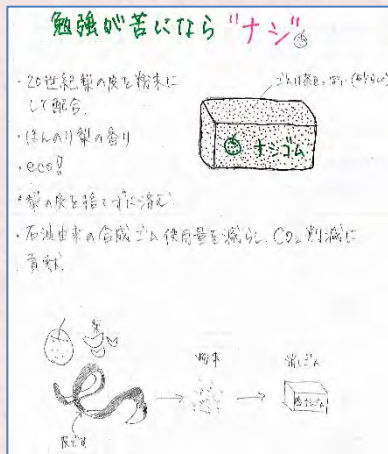 勉強が苦になら"ナシ"
・20世紀梨の皮を粉末に
して配合
・ほんのり梨の香り
・eco!!
・梨の皮を捨てずに済む
・石油由来の合成ゴム使用量を減らし、CO₂削減に
貢献
ナシゴム
梨
皮です
粉末
消しゴム